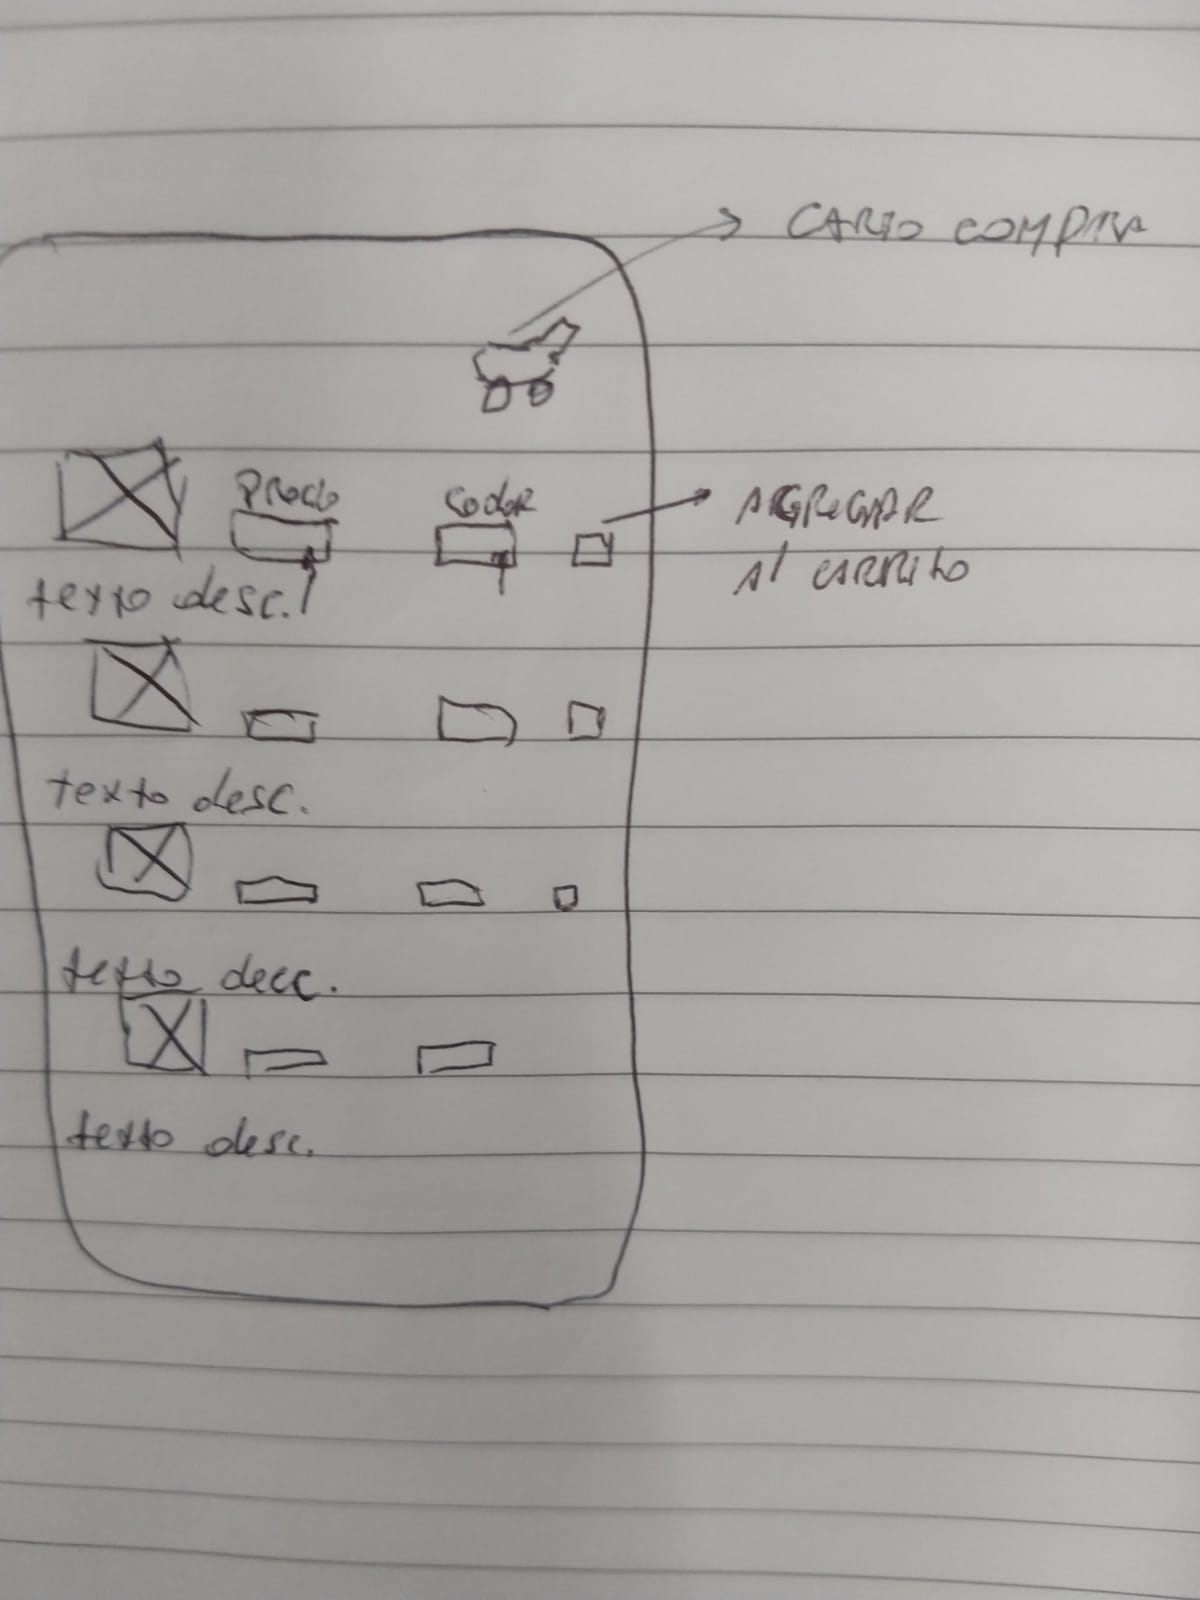 CARIO COMPRA
Precio
Color
AGREGAR
Al CARRITO
texto desc.
texto desc.
texto decc.
texto desc.